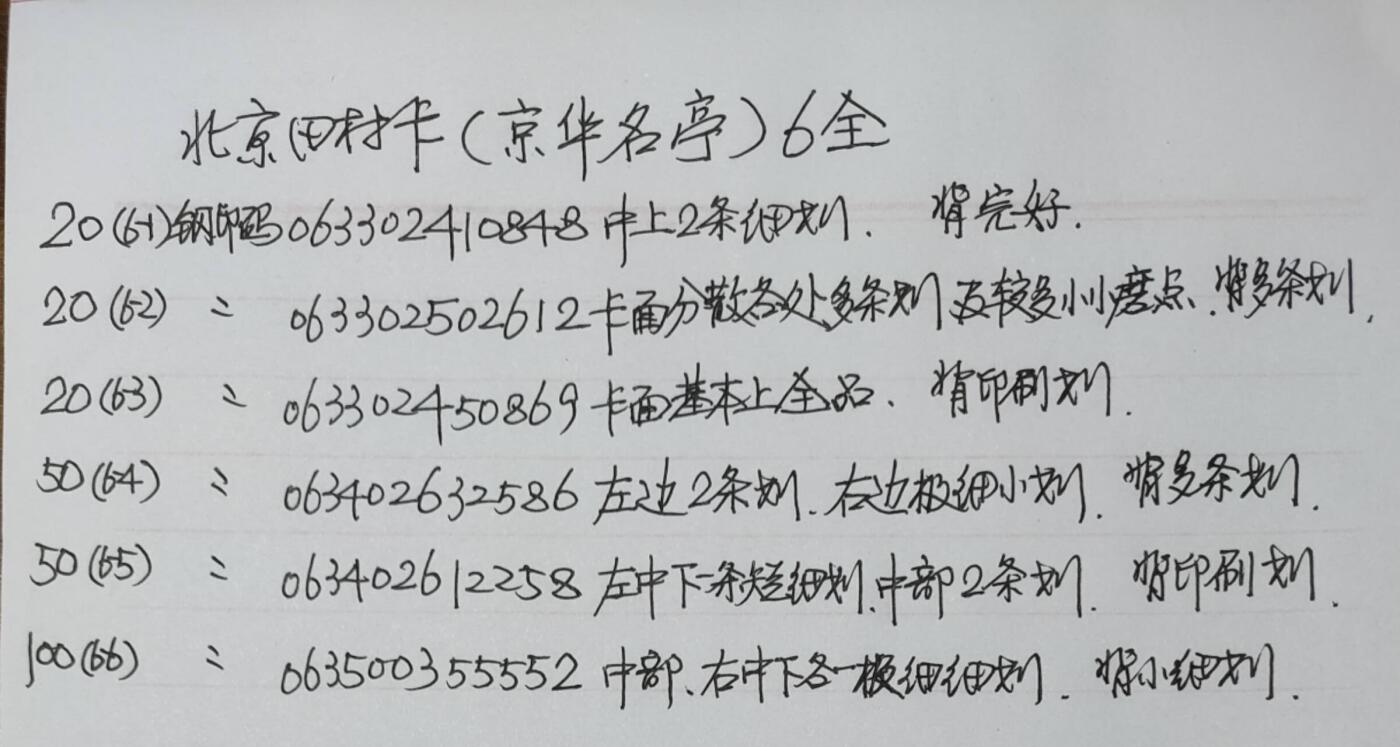 北京田村卡(京华名亭)6全
20(6-1)钢印码063302410848中上2条细划. 背完好.
20(6-2) 〃 063302502612卡面分散各处多条划及较多小小磨点、背多条划.
20(6-3) 〃 063302450869卡面基本上全品、背印刷划.
50(6-4) 〃 063402632586左边2条划.右边极细小划. 背多条划.
50(6-5) 〃 063402612258左中下一条短细划.中部2条划. 背印刷划.
100(6-6) 〃 063500355552中部、右中下各一极细细划. 背小细划.